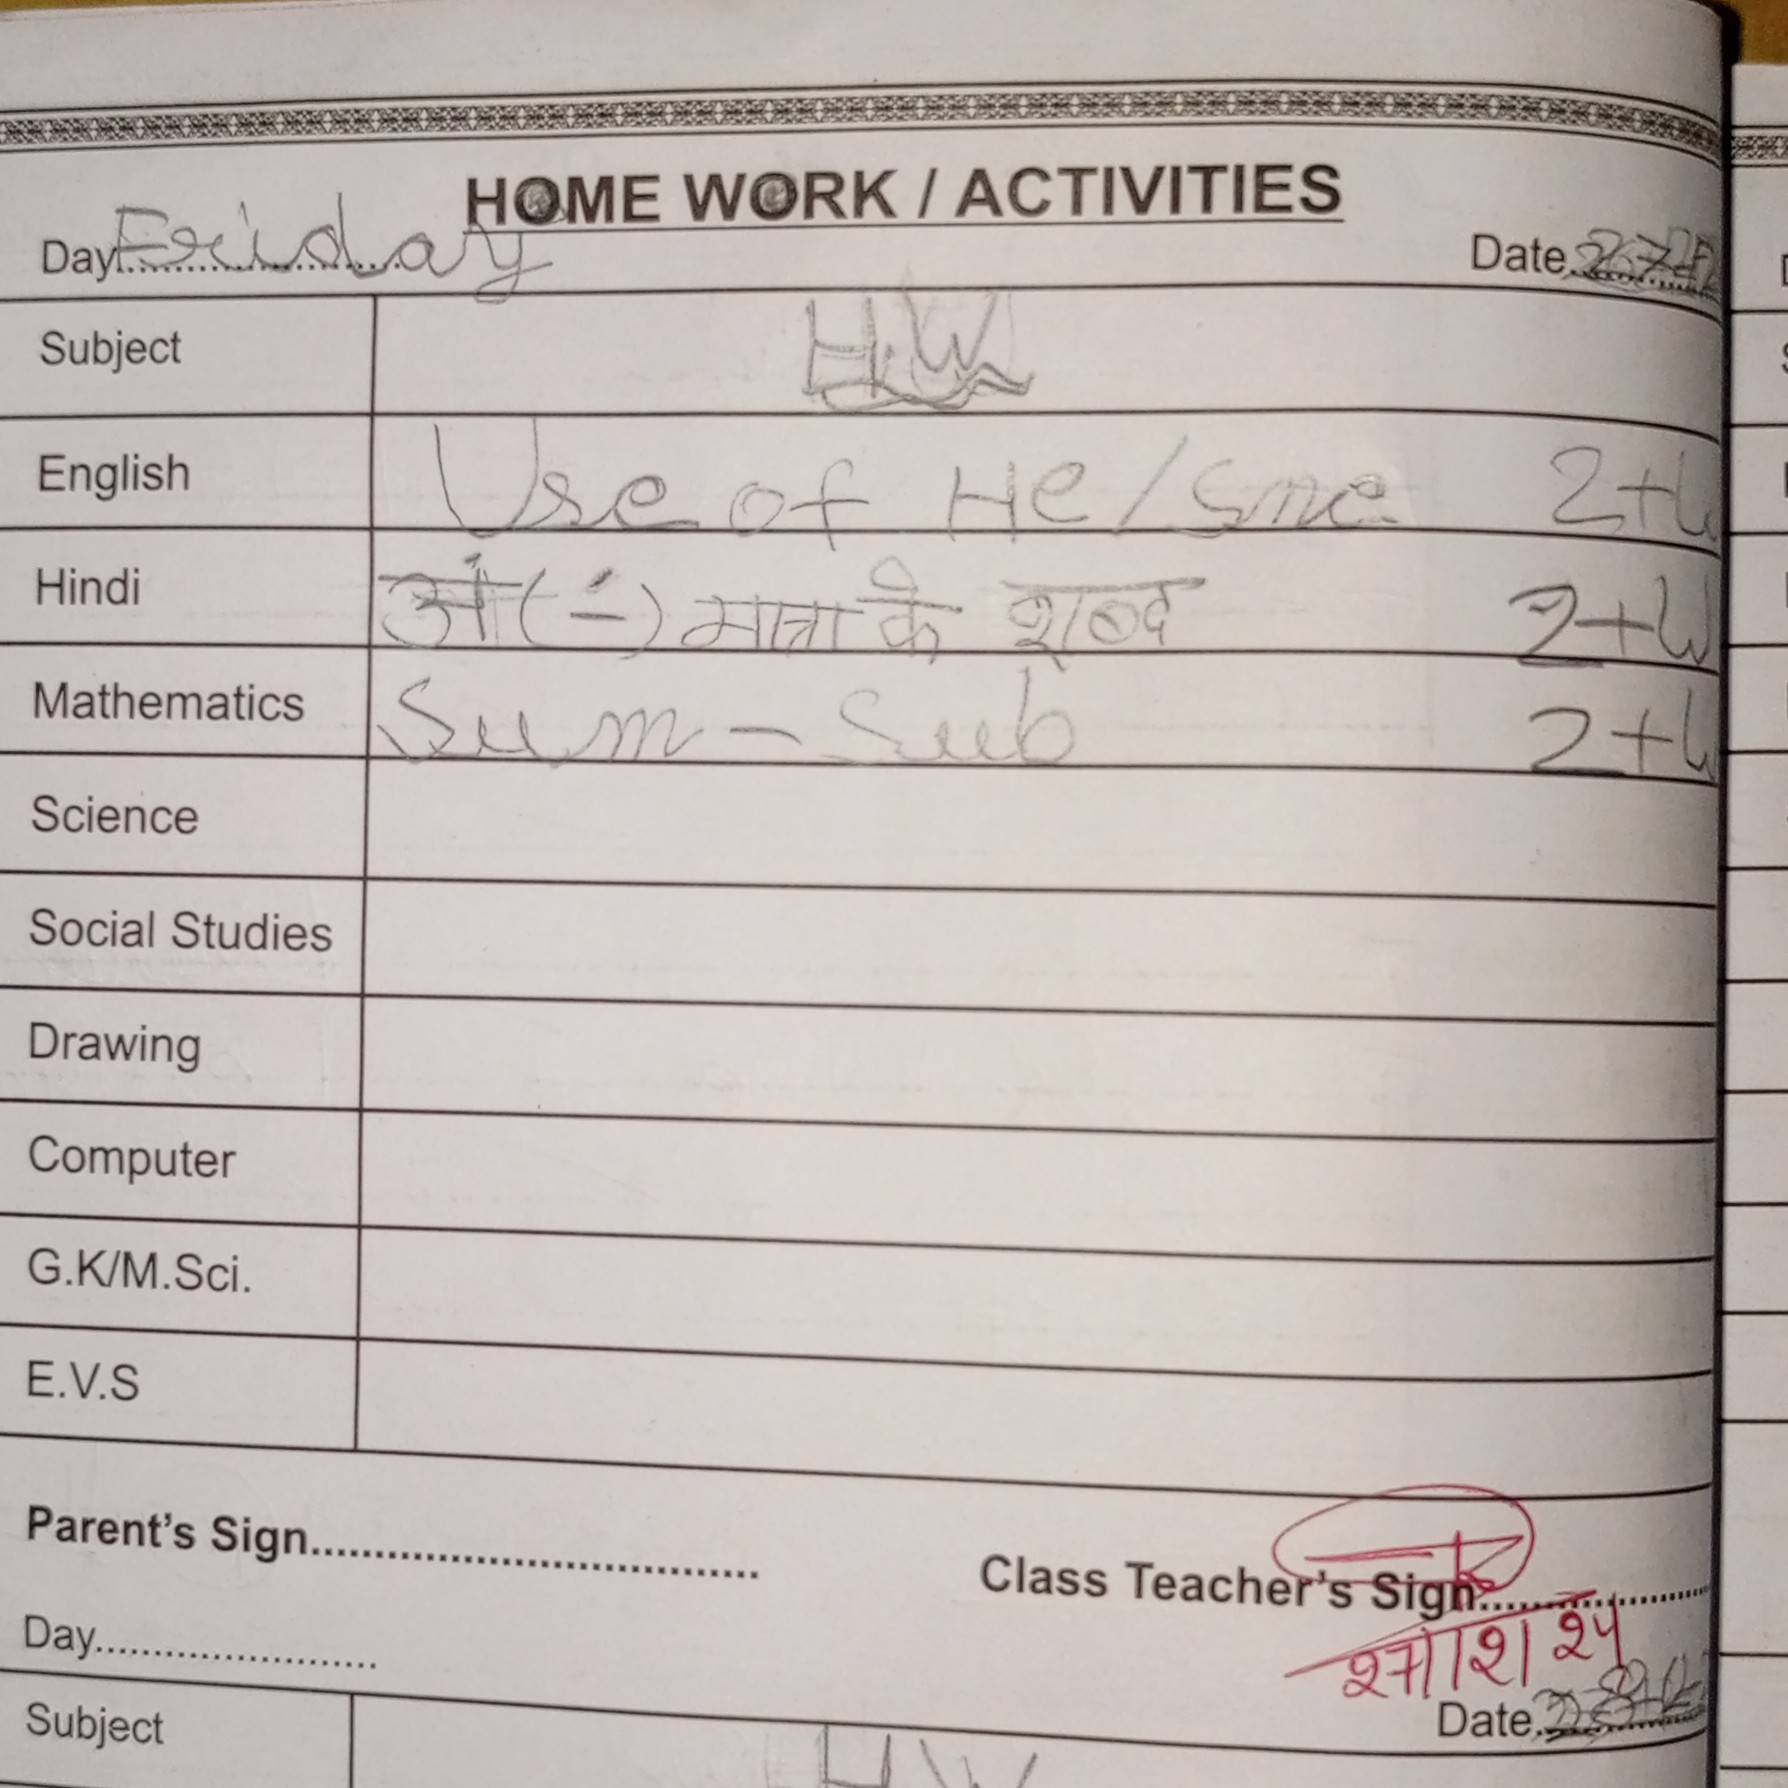 HOME WORK / ACTIVITIES
Day Friday Date
Subject H.W
English Use of He/She 2+W
Hindi अं(ं) मात्रा के शब्द 2+W
Mathematics Sum - Sub 2+W
Science
Social Studies
Drawing
Computer
G.K/M.Sci.
E.V.S
Parent's Sign
Class Teacher's Sign
Day
Date
Subject H W